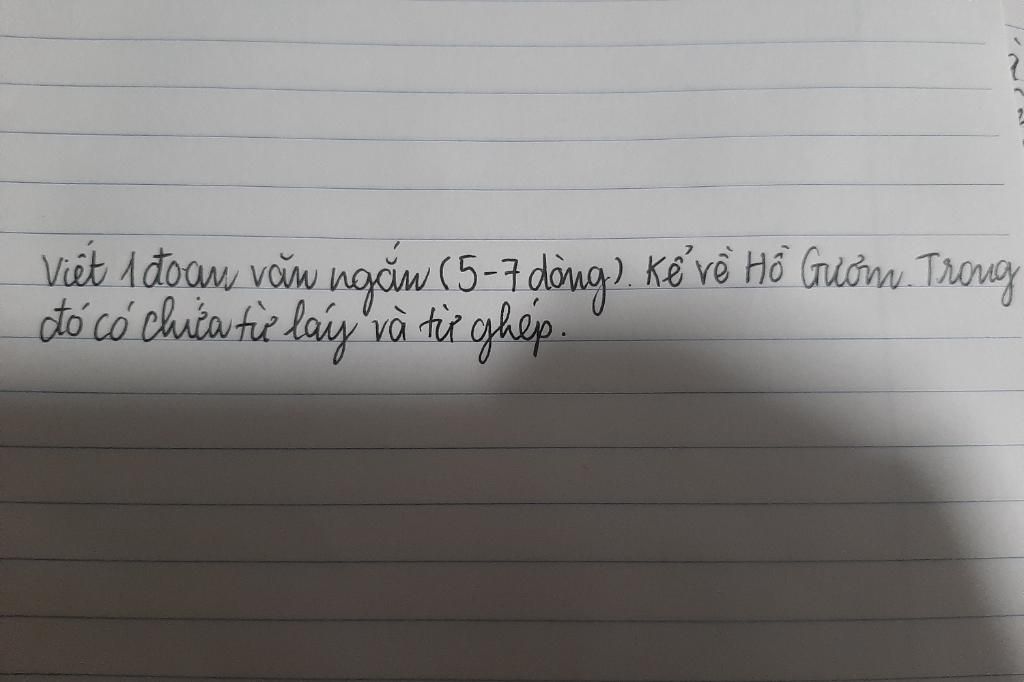 Viết 1 đoạn văn ngắn (5-7 dòng). Kể về Hồ Gươm. Trong
đó có chứa từ láy và từ ghép.